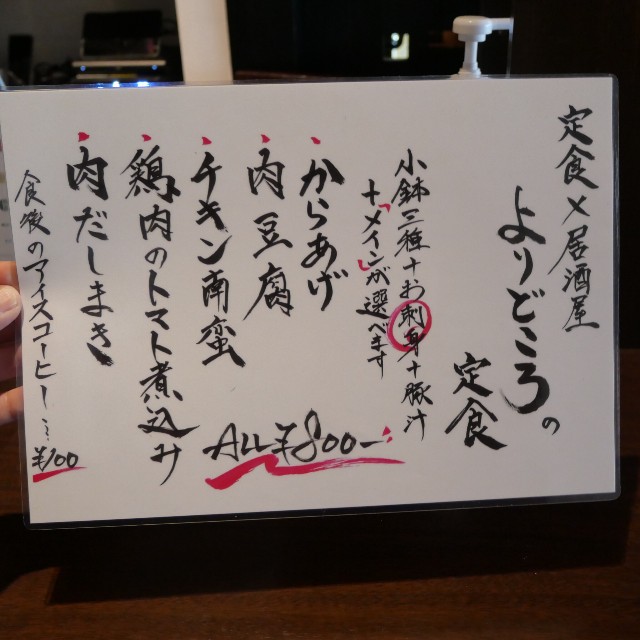 定食×居酒屋
よりどころの
定食
小鉢三種+お刺身+豚汁
+メインが選べます
からあげ
肉豆腐
チキン南蛮
鶏肉のトマト煮込み
肉だしまき
ALL¥800-
食後のアイスコーヒー…
¥100